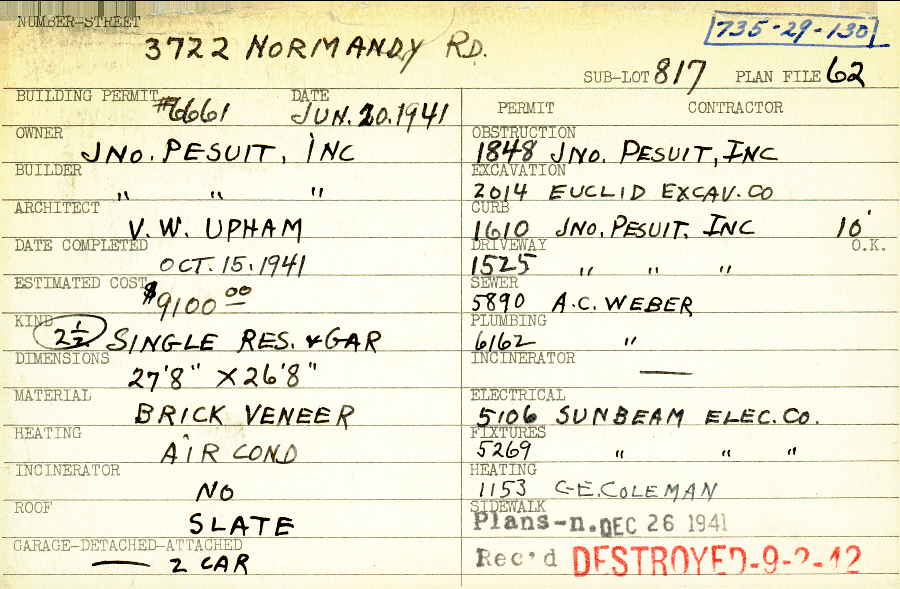 NUMBER-STREET
3722 NORMANDY RD.
735-29-130
SUB-LOT 817 PLAN FILE 62
BUILDING PERMIT #6661 DATE JUN. 20. 1941
OWNER
JNO. PESUIT, INC
BUILDER
" " "
ARCHITECT
V. W. UPHAM
DATE COMPLETED
OCT. 15. 1941
ESTIMATED COST
$9100 00
KIND
2 1/2 SINGLE RES. & GAR
DIMENSIONS
27'8" X 26'8"
MATERIAL
BRICK VENEER
HEATING
AIR COND
INCINERATOR
NO
ROOF
SLATE
GARAGE-DETACHED-ATTACHED
— 2 CAR
PERMIT CONTRACTOR
OBSTRUCTION
1848 JNO. PESUIT, INC
EXCAVATION
2014 EUCLID EXCAV. CO
CURB
1610 JNO. PESUIT. INC 10'
DRIVEWAY O.K.
1525 " " "
SEWER
5890 A.C. WEBER
PLUMBING
6162 "
INCINERATOR
—
ELECTRICAL
5106 SUNBEAM ELEC. CO.
FIXTURES
5269 " " "
HEATING
1153 G.E. COLEMAN
SIDEWALK
Plans-n. DEC 26 1941
Rec'd DESTROYED-9-2-42